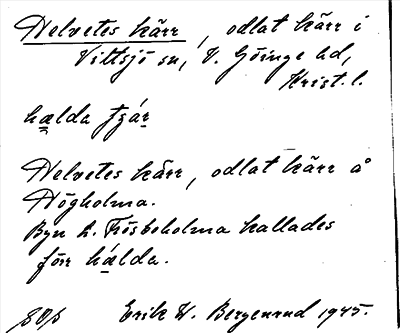 Helvetes kärr, odlat kärr i
Vittsjö sn, V. Göinge hd,
Krist. l.
hạlda tzáṛ
Helvetes kärr, odlat kärr å
Högholma.
Byn L. Frösboholma kallades
förr hạlda.
Erik W. Bergenrud 1945.